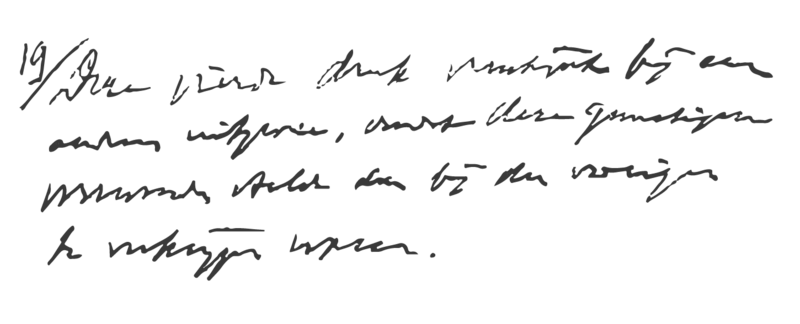 19/ Deze vierde druk verschijnt bij een
andere uitgever, omdat deze gunstiger
voorwaarden stelde dan bij de vorige
te verkrijgen waren.